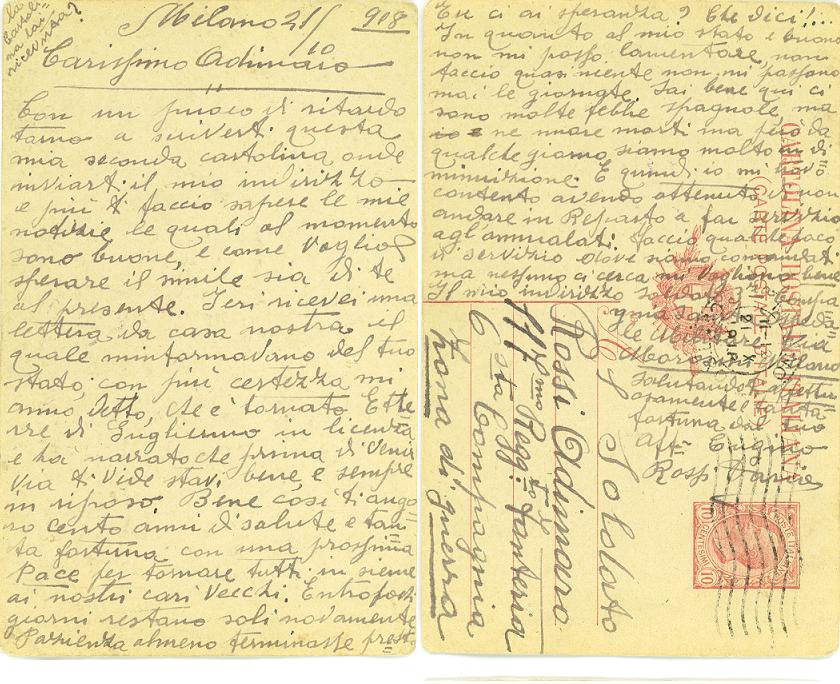 la
Cartoli-
na lai
ricevusa?
Milano 21/10 918
Carissimo Adimaro
Con un puoco di ritardo
torno a scriverti questa
mia seconda cartolina onde
inviarti il mio indirizzo
e più ti faccio sapere le mie
notizie le quali al momento
sono buone, e come voglio
sperare il simile sia di te
al presente. Ieri ricevei una
lettera da casa nostra il
quale minformavano del tuo
stato, con più certezza mi
anno detto, che è tornato Etto
rre di Guglielmo in licenza
e ha narrato che prima di Venir
via ti Vide stavi bene, e sempre
in riposo. Bene cosi ti augo
ro cento anni di salute e tan
ta fortuna con una prossima
Pace per tornare tutti in sieme
ai nostri cari Vecchi. Entro pochi
giorni restano soli novamente
Pazienza almeno terminasse presto
Tu ci ai speranza? Che dici!...
In quanto al mio stato è buono
non mi posso lamentare, non
faccio quasi niente non mi passono
mai le giornate. Sai bene qui ci
sono molte febbre spagnole, ma
ne muore morti ma però da
qualche giorno siamo molto in di
minuizione. E quindi io mi
contento avendo ottenuto di non
andare in Reparto a far servizio
agl'ammalati. faccio qualche poco
di servizio dove siamo comandati
ma nessuno ci cerca mi vogliono bene
Il mio indirizzo Soldato Compa
gnia
Militare
Milano
Salutandoti affettu
osamente
fortuna dal tuo
aff Cugino
Rossi
CARTOLINA POSTALE ITALIANA
(CARTE POSTALE D'ITALIE)
Al Soldato
Rossi Adimaro
117mo Regg. Fanteria
6 sta Compagnia
Zona di guerra
POSTE ITALIANE
10 CENTESIMI 10